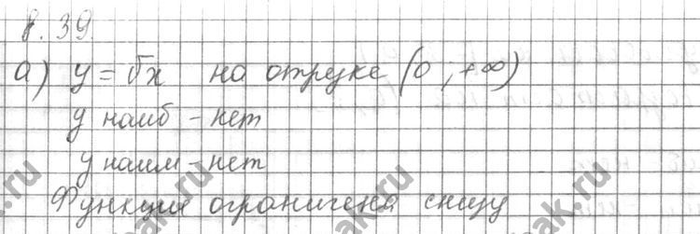 8.39
а) y = √x на отрезке (0 ; +∞)
y наиб - нет
y наим - нет
Функция ограничена снизу